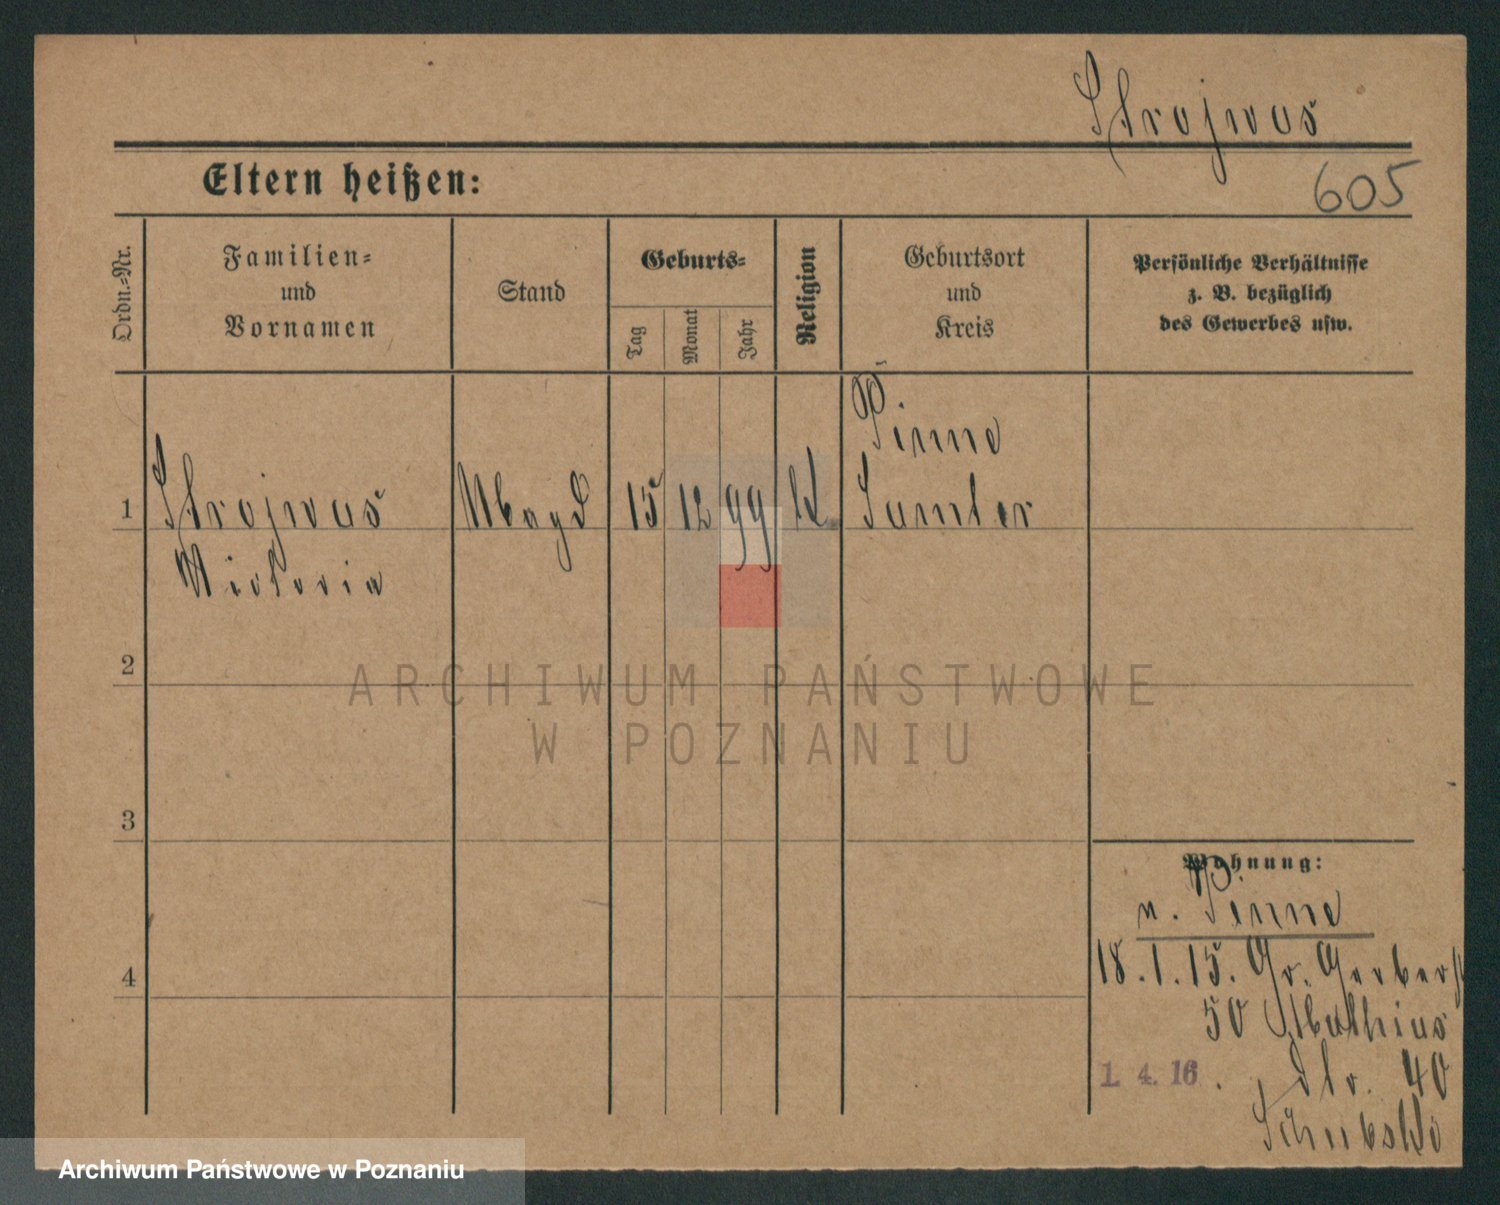 Strojwas
Eltern heißen:
605
Ordn.-Nr.
Familien-
und
Vornamen
Stand
Geburts-
Tag
Monat
Jahr
Religion
Geburtsort
und
Kreis
Persönliche Verhältnisse
z. B. bezüglich
des Gewerbes usw.
Pinne
1 Strojwas Magd 15 12 99 K Samter
Victoria
2
ARCHIWUM PAŃSTWOWE
W POZNANIU
3
Wohnung:
n. Pinne
4
18.1.15. Gr. Gerberst
50 Mathias
1. 4. 16 . str. 40
Archiwum Państwowe w Poznaniu